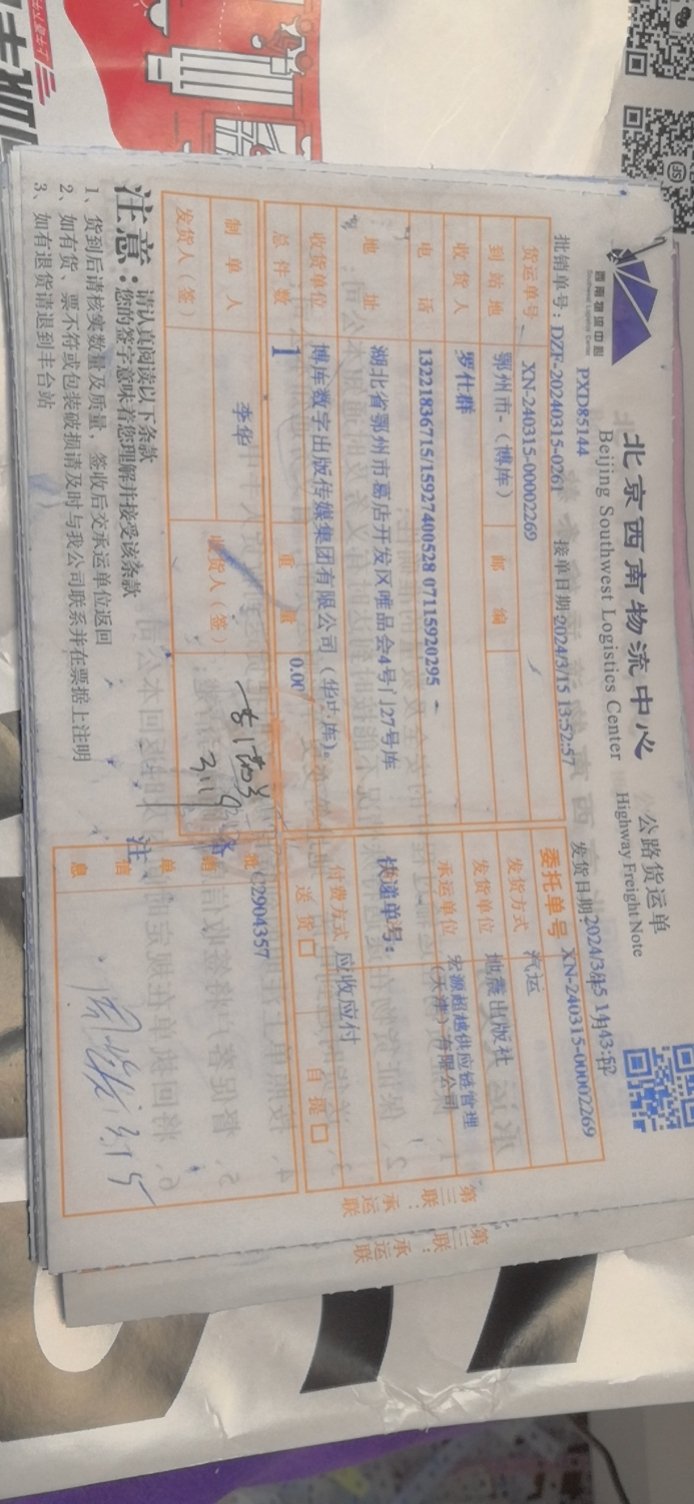 西南物流中心
Southwest Logistics Center
北京西南物流中心
公路货运单
Beijing Southwest Logistics Center
Highway Freight Note
PXD85144
批销单号：DZF-20240315-0261
接单日期 2024/3/15 13:52:57
发货日期
货运单号 XN-240315-00002269
委托单号 XN-240315-00002269
到站地 鄂州市-（博库） 邮编
发货方式 汽运
收货人 罗仕群
发货单位 地震出版社
电话 13221836715/15927400528 07115920295
承运单位 宏源超越供应链管理（天津）有限公司
地址 湖北省鄂州市葛店开发区唯品会4号门27号库
快递单号：
收货单位 博库数字出版传媒集团有限公司（华中库）。
付费方式 应收应付
总件数 1 重量 0.00
送货 □ 自提 □
制单人 李华
收货人（签）
发货人（签）
批销单信息
C2904357
备注
注意：
请认真阅读以下条款
您的签字意味着您理解并接受该条款
1、货到后请核实数量及质量，签收后交承运单位返回
2、如有货、票不符或包装破损请及时与我公司联系并在票据上注明
3、如有退货请退到丰台站
第三联：承运联
第三联：承运联